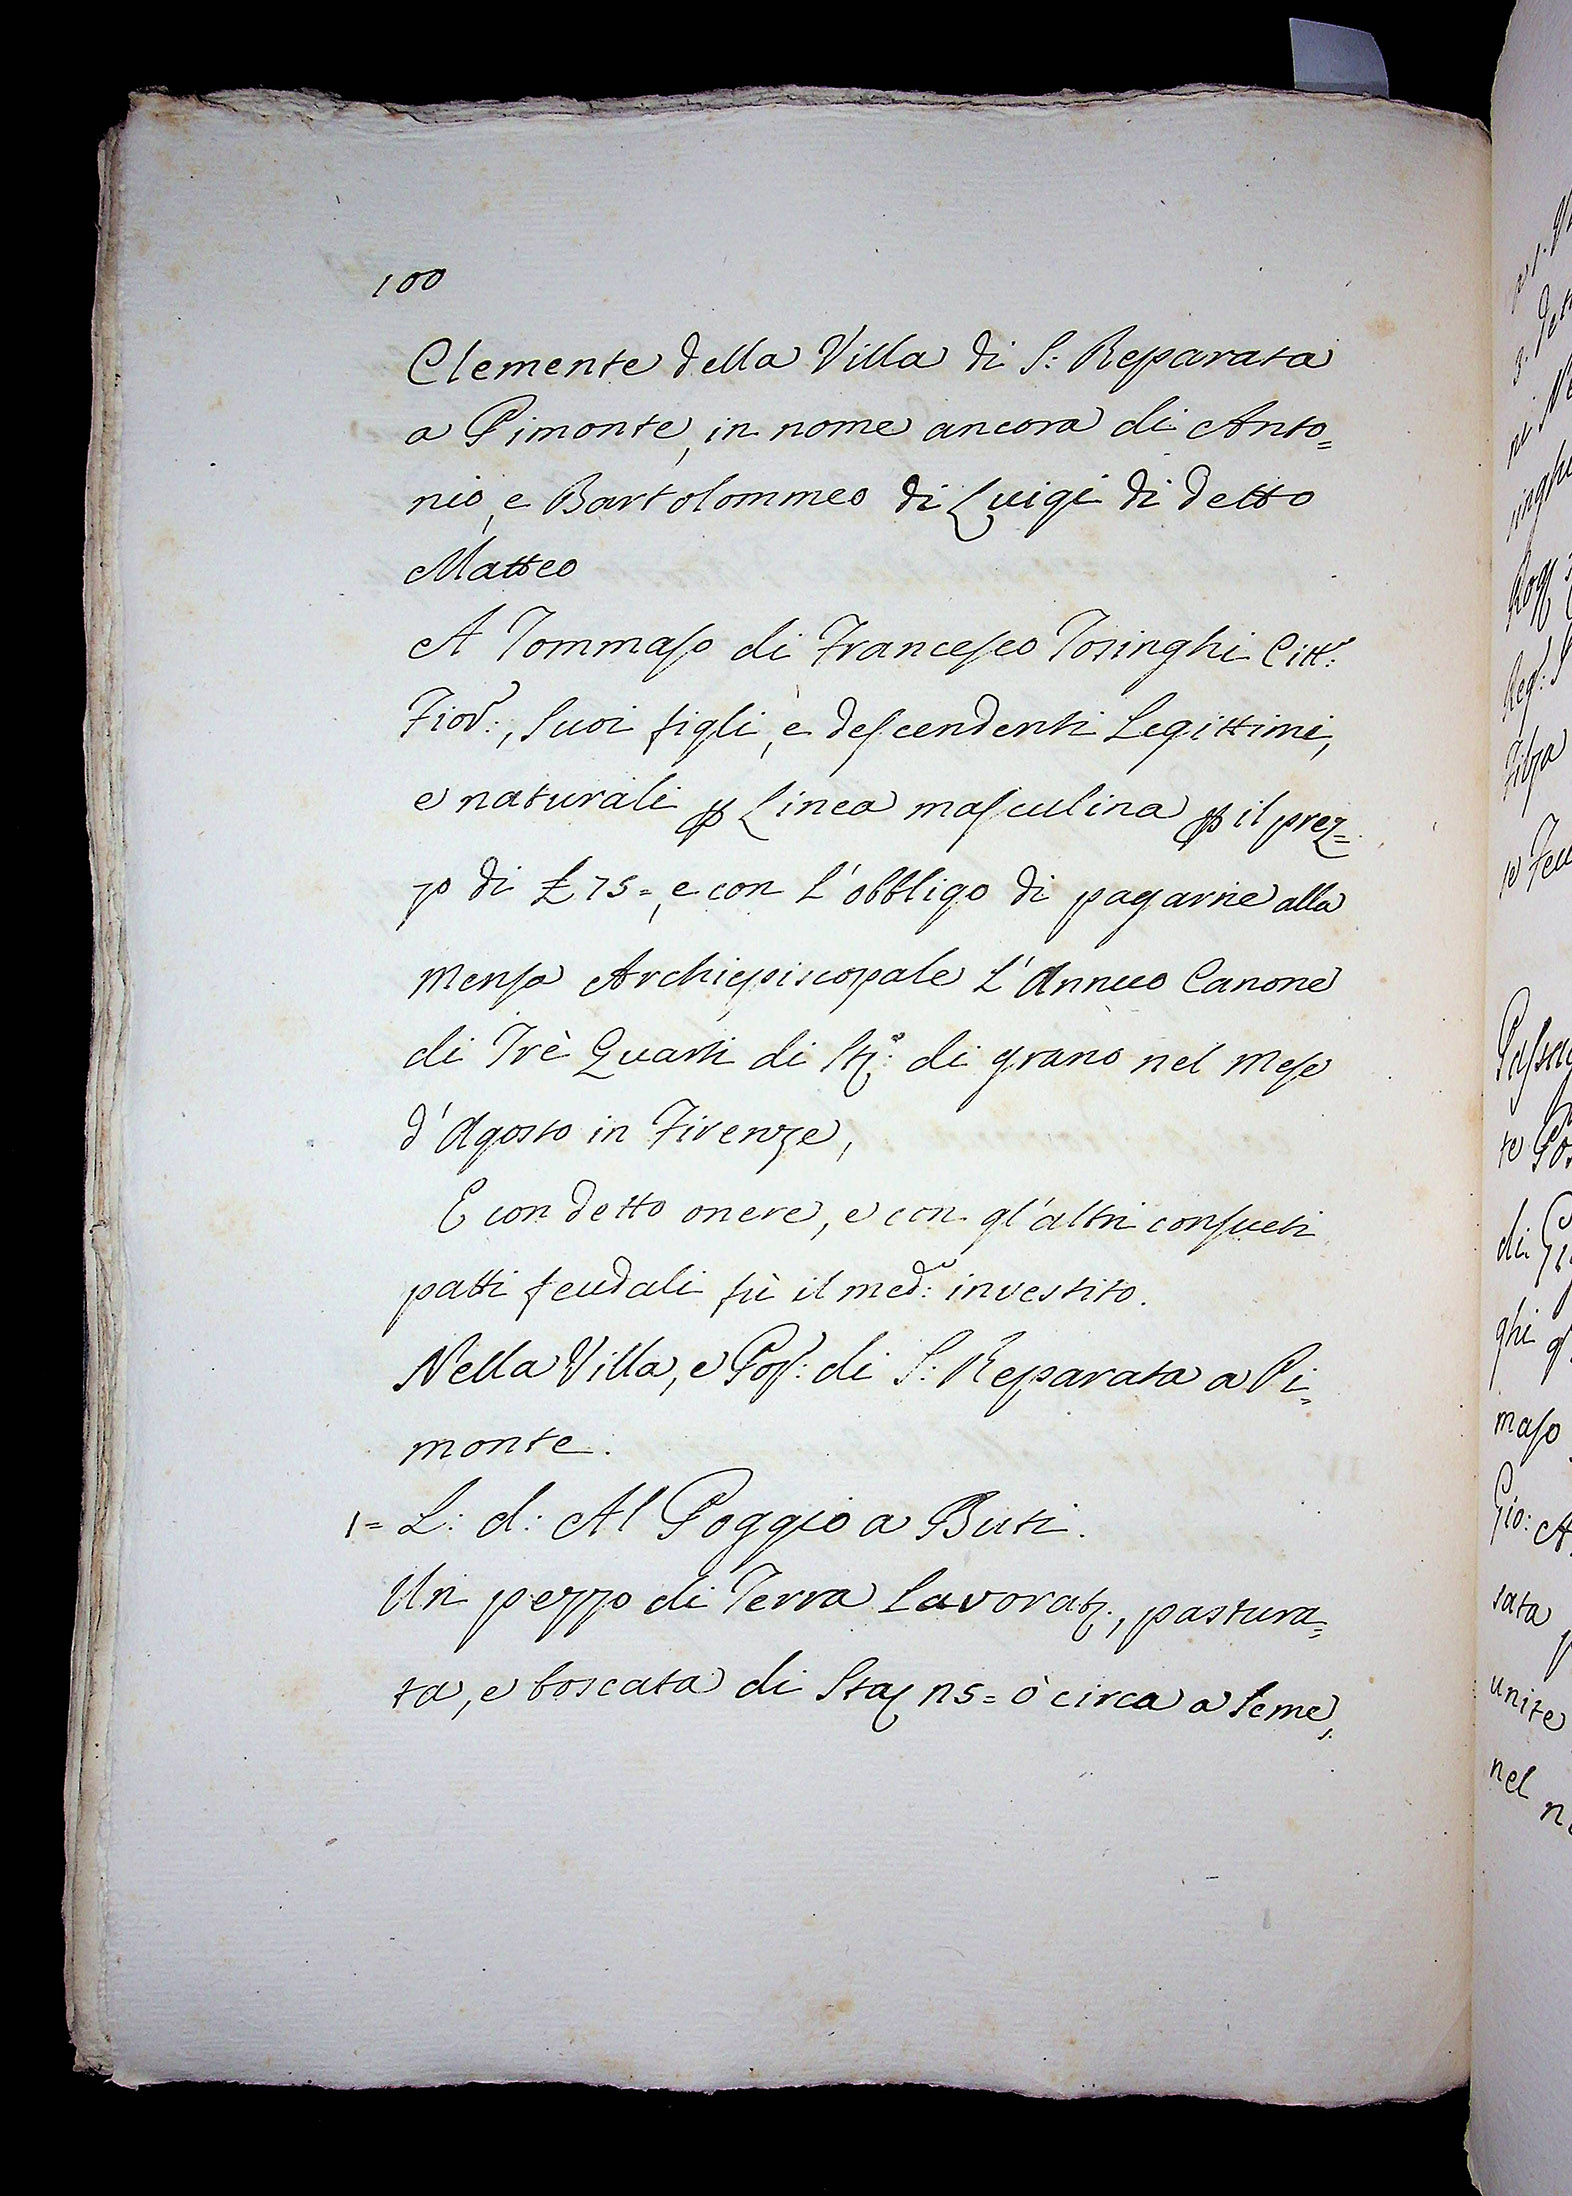 100
Clemente della Villa di S: Reparata
a Pimonte, in nome ancora di Anto=
nio, e Bartolommeo di Luigi di detto
Matteo
A Tommaso di Francesco Tosinghi Citt.o:
Fior.o:, Suoi figli, e descendenti Legittimi,
e naturali p Linea masculina p il prez=
zo di £ 75=, e con l'obbligo di pagarne alla
Mensa Archiepiscopale l'Annuo Canone
di Trè Quarti di St.o: di grano nel Mese
d'Agosto in Firenze,
E con detto onere, e con gl'altri consueti
patti feudali fù il med.o: investito.
Nella Villa, e Pop: di S: Reparata a Pi=
monte.
1= L: d: Al Poggio a Buti.
Un pezzo di Terra Lavorat:, pastura=
ta, e boscata di Staj n 5= ò circa a Seme,